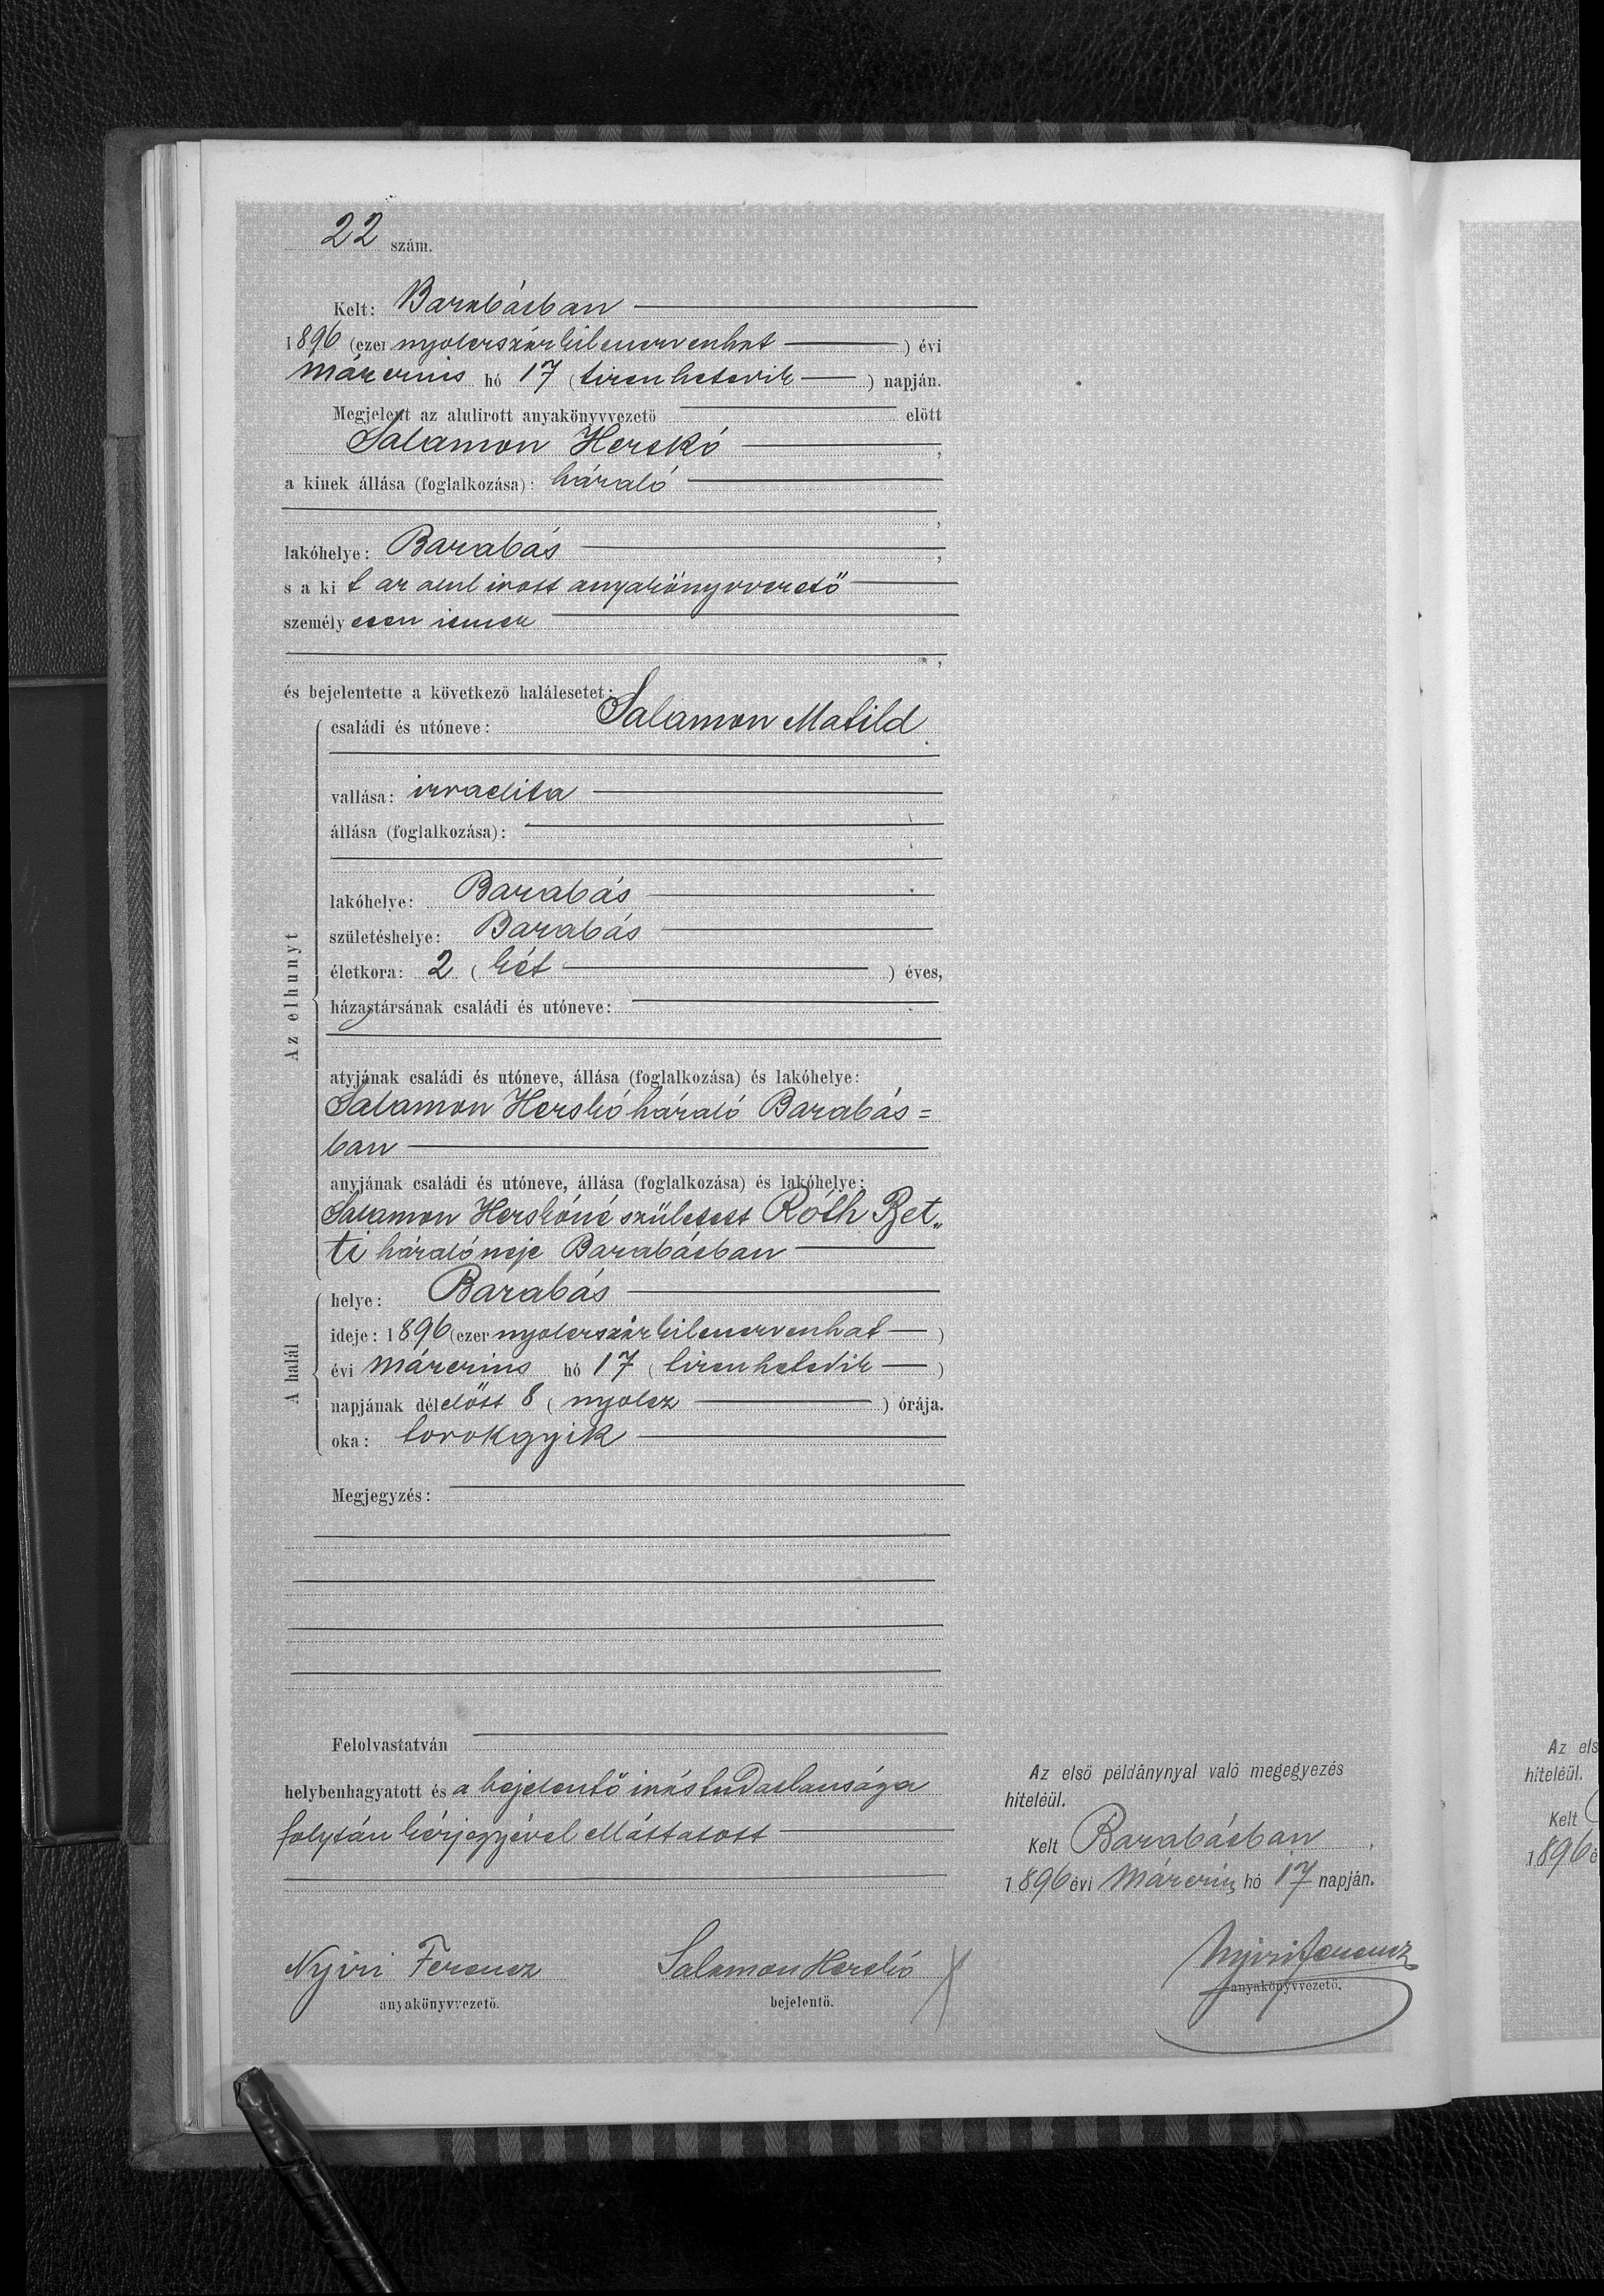 22 szám.
Kelt: Barabásban
1896 (ezer nyolcszázkilencvenhat) évi
márczius hó 17 (tizenhetedik) napján.
Megjelent az alulirott anyakönyvvezető előtt
Salamon Herskó,
a kinek állása (foglalkozása): házaló
,
lakóhelye: Barabás,
s a kit az alul irott anyakönyvvezető
személyesen ismer
,
és bejelentette a következő halálesetet:
Az elhunyt
családi és utóneve: Salamon Matild
vallása: izraelita
állása (foglalkozása):
lakóhelye: Barabás
születéshelye: Barabás
életkora: 2 (két) éves,
házastársának családi és utóneve:
atyjának családi és utóneve, állása (foglalkozása) és lakóhelye:
Salamon Herskó házaló Barabás=
ban
anyjának családi és utóneve, állása (foglalkozása) és lakóhelye:
Salamon Herskóné született Róth Bet„
ti házaló neje Barabásban
A halál
helye: Barabás
ideje: 1896 (ezer nyolcszázkilencvenhat)
évi márczius hó 17 (tizenhetedik)
napjának délelőtt 8 (nyolcz) órája.
oka: torokgyik
Megjegyzés:
Felolvastatván
helybenhagyatott és a bejelentő irástudatlansága
folytán kézjegyével elláttatott
Nyiri Ferencz
anyakönyvvezető.
Salamon Herskó X
bejelentő.
Az első példánynyal való megegyezés
hiteléül.
Kelt Barabásban,
1896 évi márczius hó 17 napján.
Nyiri Ferencz
anyakönyvvezető.
Az els
hiteléül.
Kelt
1896 é